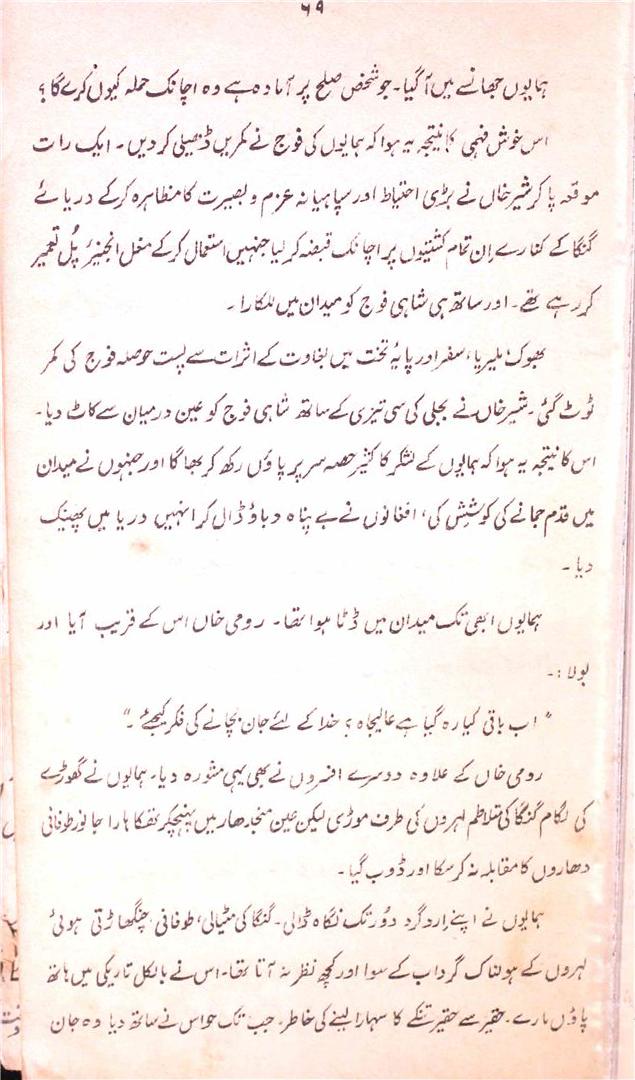 ۶۹
ہمایوں جھانسے میں آگیا۔ جو شخص صلح پر آمادہ ہے وہ اچانک حملہ کیوں کرے گا؟
اس خوش فہمی کا نتیجہ یہ ہوا کہ ہمایوں کی فوج نے کمریں ڈھیلی کر دیں۔ ایک رات
موقعہ پا کر شیر خاں نے بڑی احتیاط اور سپاہیانہ عزم و بصیرت کا مظاہرہ کر کے دریائے
گنگا کے کنارے اِن تمام کشتیوں پر اچانک قبضہ کر لیا جنہیں استعمال کر کے مغل انجینئر پُل تعمیر
کر رہے تھے۔ اور ساتھ ہی شاہی فوج کو میدان میں للکارا۔
بھوک، ملیریا، سفر اور پایۂ تخت میں بغاوت کے اثرات سے پست حوصلہ فوج کی کمر
ٹوٹ گئی۔ شیر خاں نے بجلی کی سی تیزی کے ساتھ شاہی فوج کو عین درمیان سے کاٹ دیا۔
اس کا نتیجہ یہ ہوا کہ ہمایوں کے لشکر کا کثیر حصہ سر پر پاؤں رکھ کر بھاگا اور جنہوں نے میدان
میں قدم جمانے کی کوشش کی، افغانوں نے بے پناہ دباؤ ڈال کر انہیں دریا میں پھینک
دیا۔
ہمایوں ابھی تک میدان میں ڈٹا ہوا تھا۔ رومی خاں اس کے قریب آیا اور
بولا:۔
"اب باقی کیا رہ گیا ہے عالیجاہ؟ خدا کے لئے جان بچانے کی فکر کیجئے۔"
رومی خاں کے علاوہ دوسرے افسروں نے بھی یہی مشورہ دیا۔ ہمایوں نے گھوڑے
کی لگام گنگا کی متلاطم لہروں کی طرف موڑی لیکن عین منجدھار میں پہنچکر تھکا ہارا جانور طوفانی
دھاروں کا مقابلہ نہ کر سکا اور ڈوب گیا۔
ہمایوں نے اپنے ارد گرد دُور تک نگاہ ڈالی۔ گنگا کی مٹیالی، طوفانی، چنگھاڑتی ہوئی
لہروں کے ہولناک گرداب کے سوا اور کچھ نظر نہ آتا تھا۔ اس نے بالکل تاریکی میں ہاتھ
پاؤں مارے۔ حقیر سے حقیر تنکے کا سہارا لینے کی خاطر۔ جب تک حواس نے ساتھ دیا وہ جان